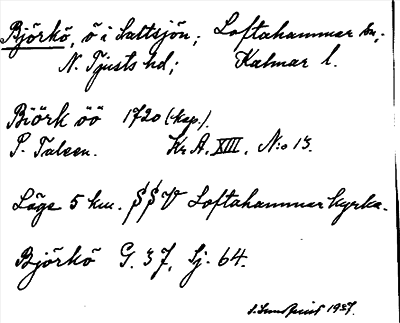 Björkö, ö i Saltsjön; Loftahammar sn;
N. Tjusts hd; Kalmar l.
Biörk öö 1720 (kop.).
P. Taleen. Kr A. XIII. N:o 13.
Läge 5 km. SSV Loftahammar kyrka.
Björkö G. 37, Sj. 64.
1937.